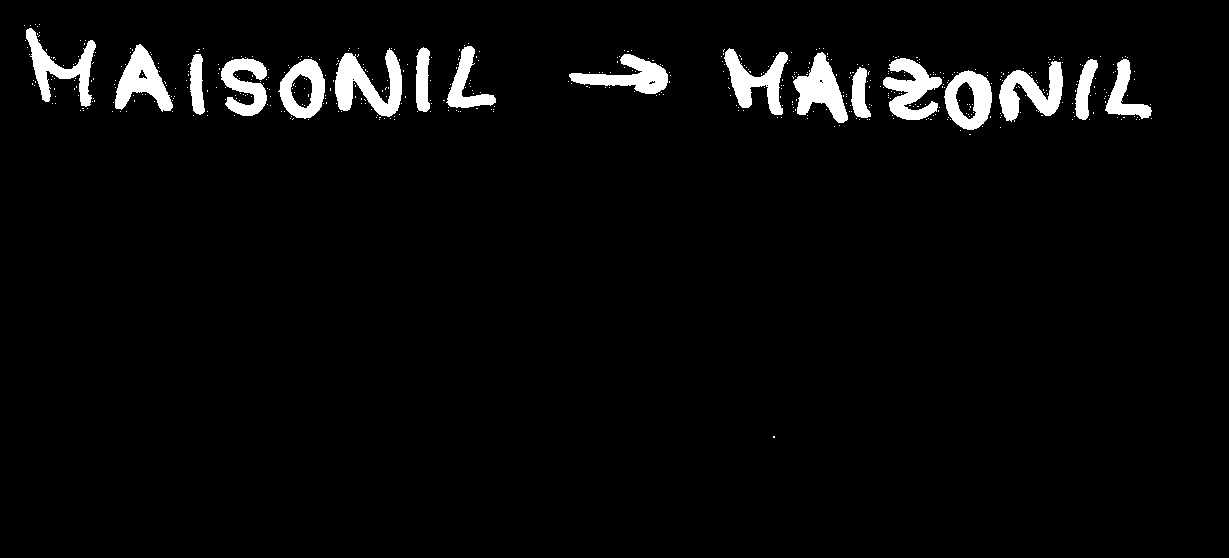 MAISONIL → MAIZONIL